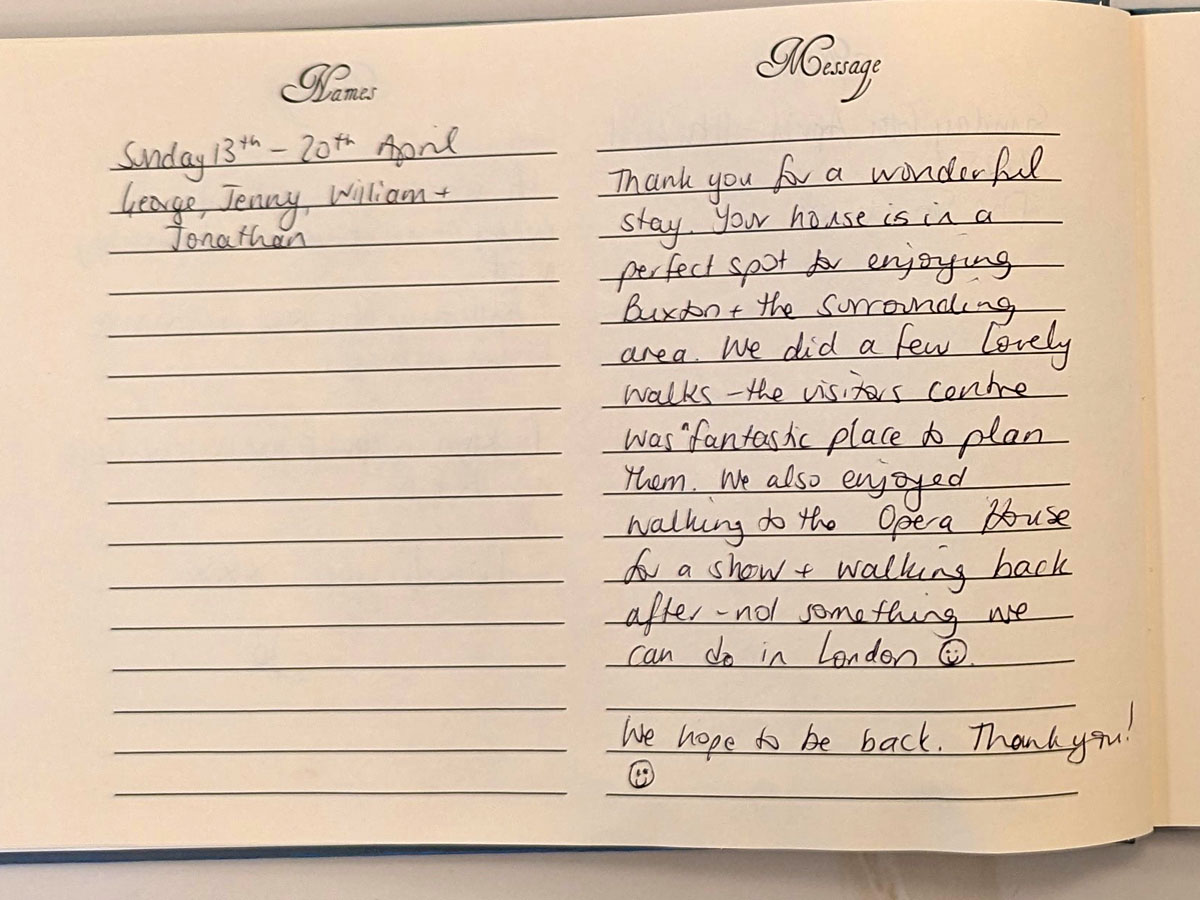 Names
Sunday 13th - 20th April
George, Jenny, William +
Jonathan
Message
Thank you for a wonderful
stay. Your house is in a
perfect spot for enjoying
Buxton + the surrounding
area. We did a few lovely
walks - the visitors centre
was a fantastic place to plan
them. We also enjoyed
walking to the Opera House
for a show + walking back
after - not something we
can do in London ☺.
We hope to be back. Thank you!
☺